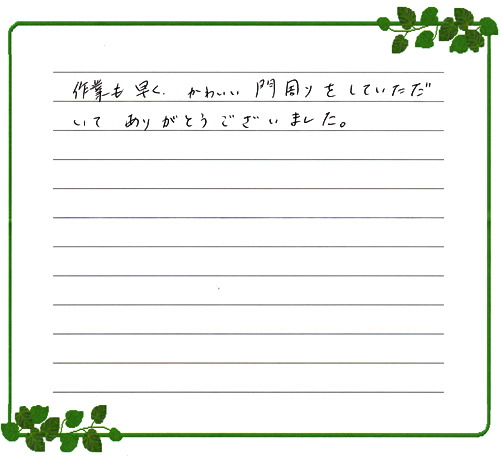 作業も早く、かわいい門周りをしていただ
いて ありがとうございました。